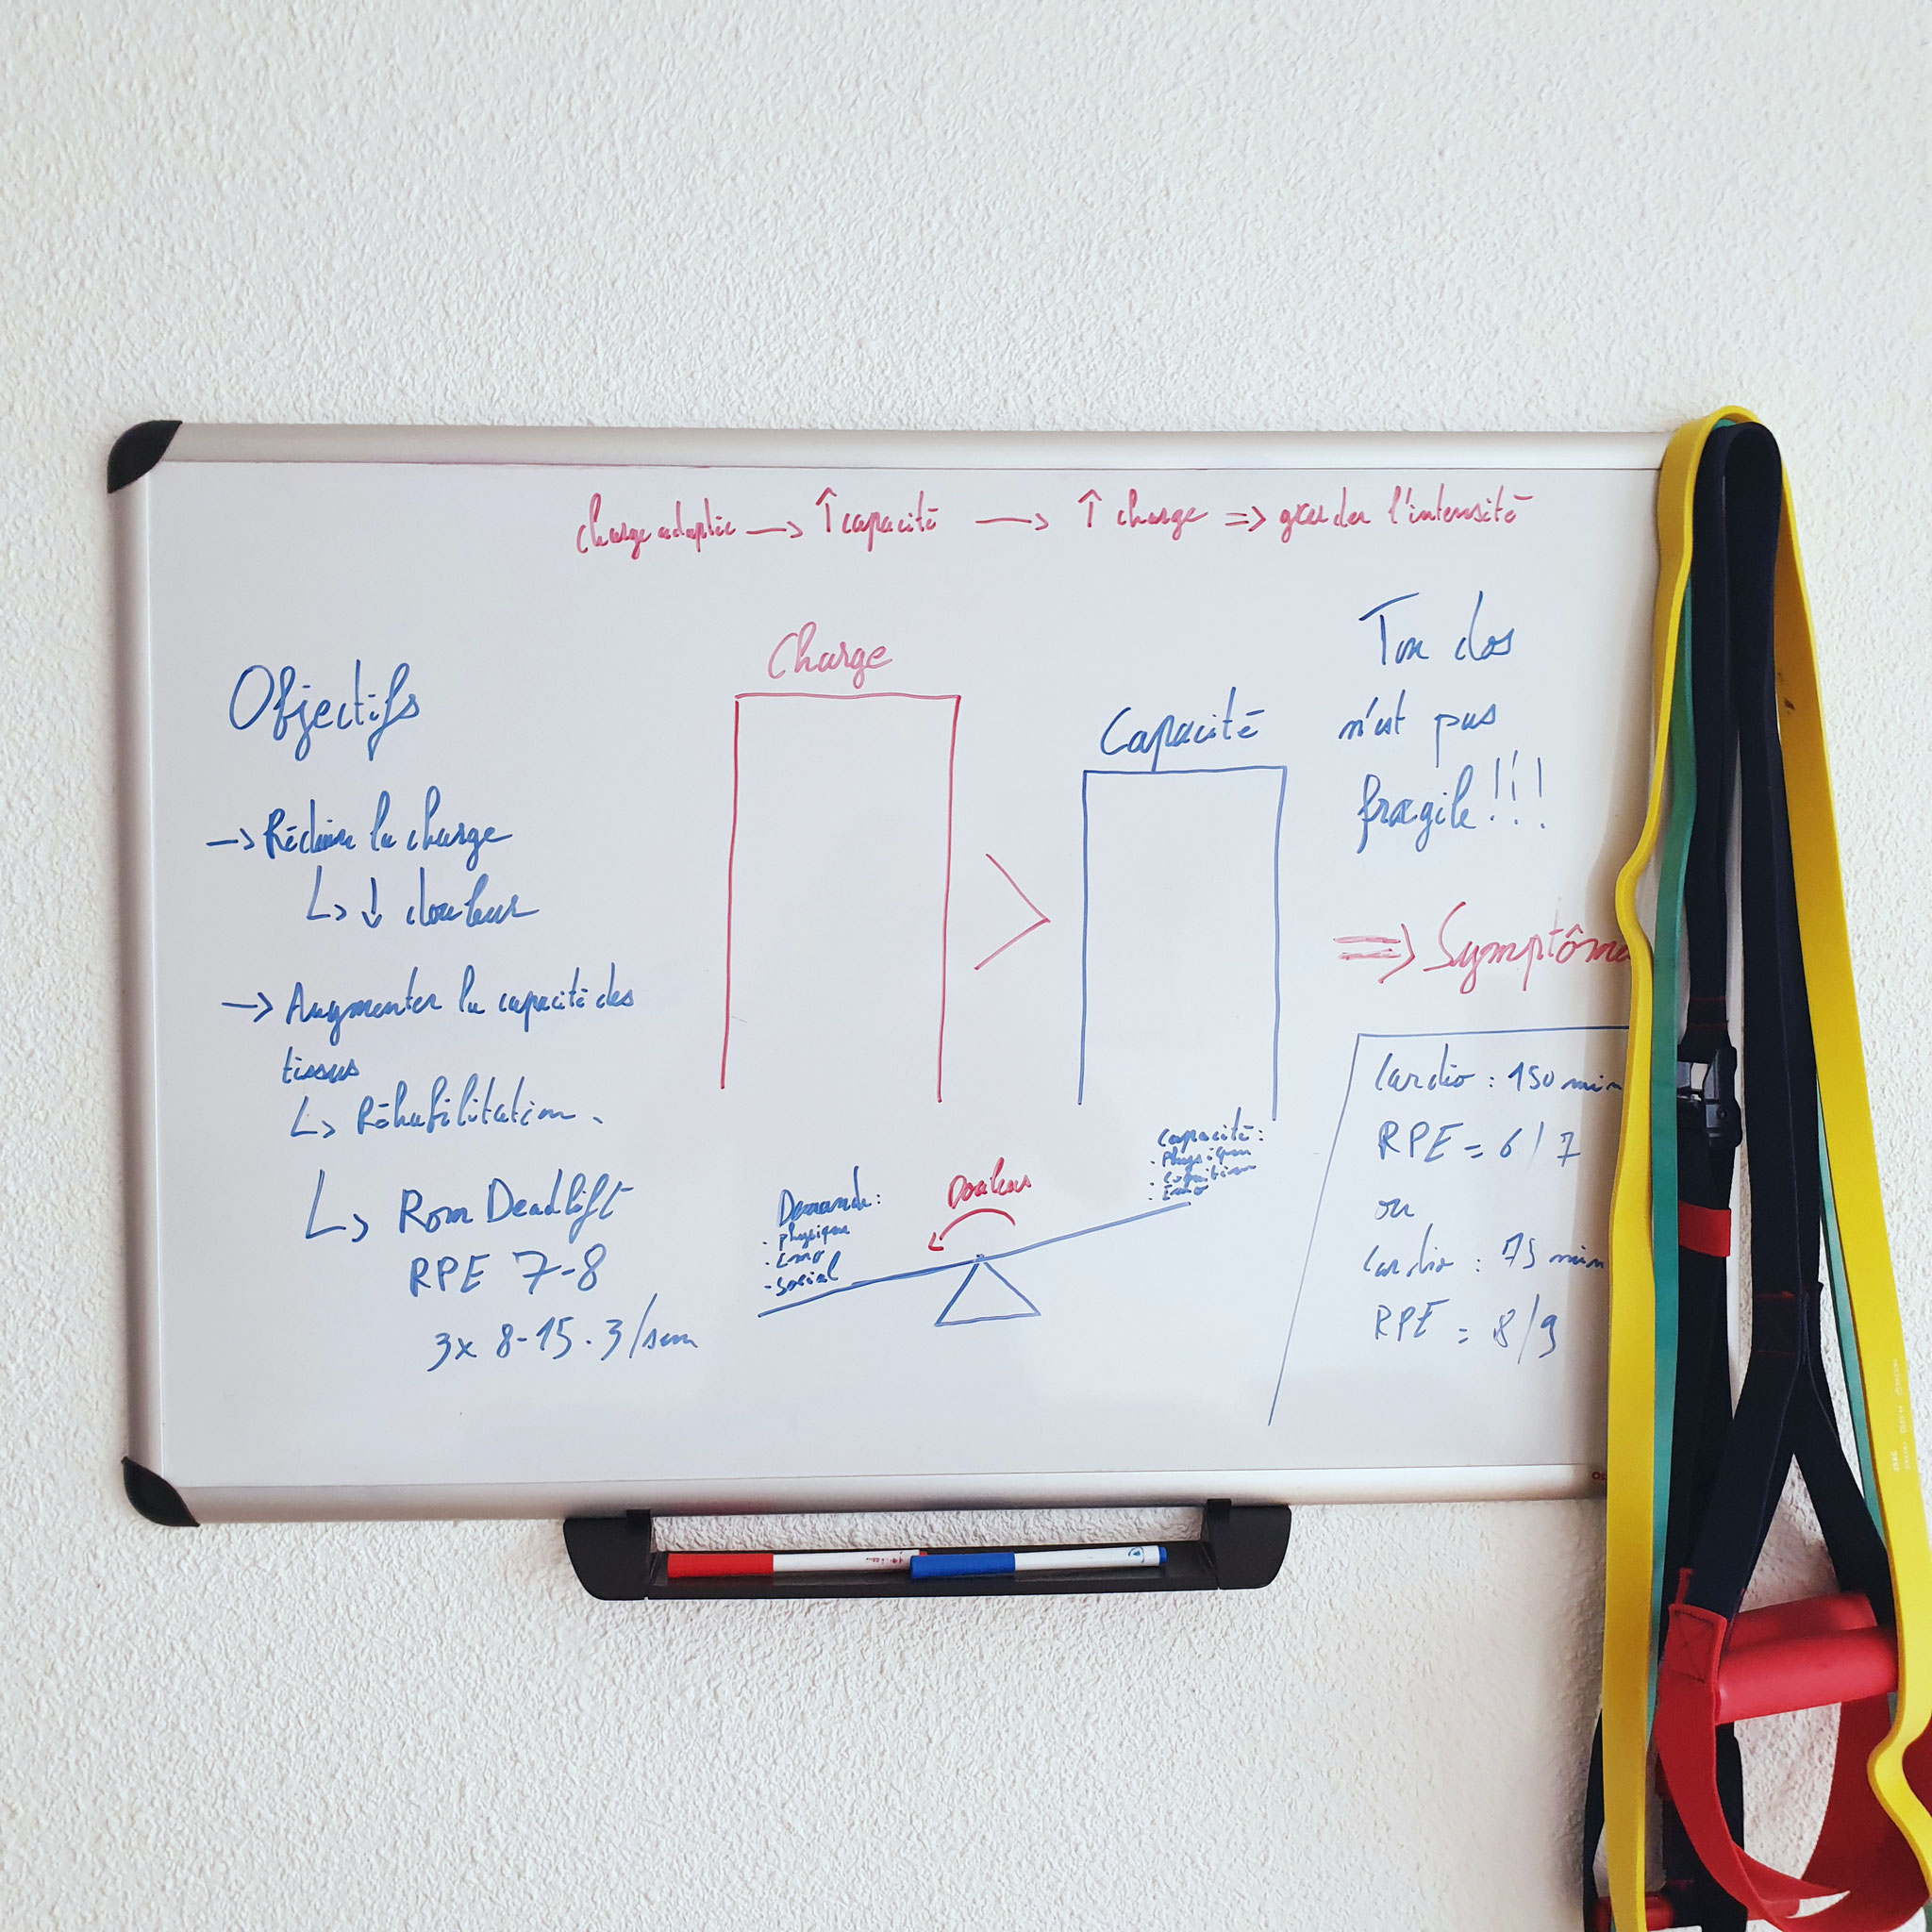 charge adaptée —> ↑ capacité —> ↑ charge => graduer l'intensité
Objectifs
—> Réduire la charge
↳ ↓ douleur
—> Augmenter la capacité des
tissus
↳ Réhabilitation.
↳ Rom Deadlift
RPE 7-8
3x 8-15. 3/sem
Charge
>
Capacité
Demande:
. physique
. Emo
- Social
Douleur
Capacité:
. Physique
. Cognitive
. Emo
Ton dos
n'est pas
fragile!!!
=> Symptôme
Cardio : 150 min
RPE = 6/7
ou
Cardio : 75 min
RPE = 8/9